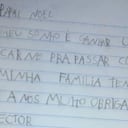 PAPAI NOEL
MEU SONHO E GANHAR U
CARNE PRA PASSAR CO
MINHA FAMILIA TEN
ANOS MUITO OBRIGA
ECTOR